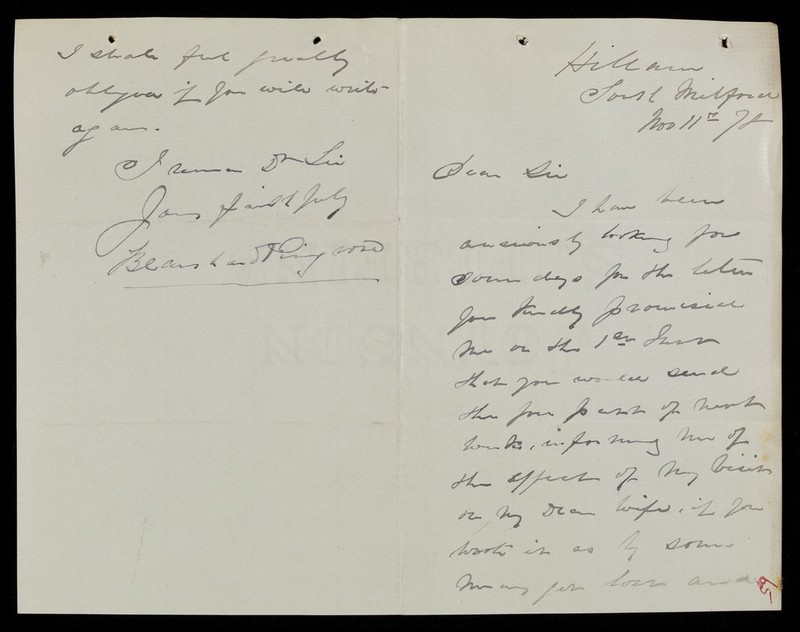 Hillam
South Milford
Nov 11th 78
Dear Sir
I have been
anxiously looking for
some days for the letter
you kindly promised
me on the 1st Inst
that you would send
the fore part of next
week, informing me of
the effect of my visit
on my Dear Wife, if you
wrote it as by some
means got lost and
I shall feel greatly
obliged if you will write
again.
I remain Dr Sir
Yours faithfully